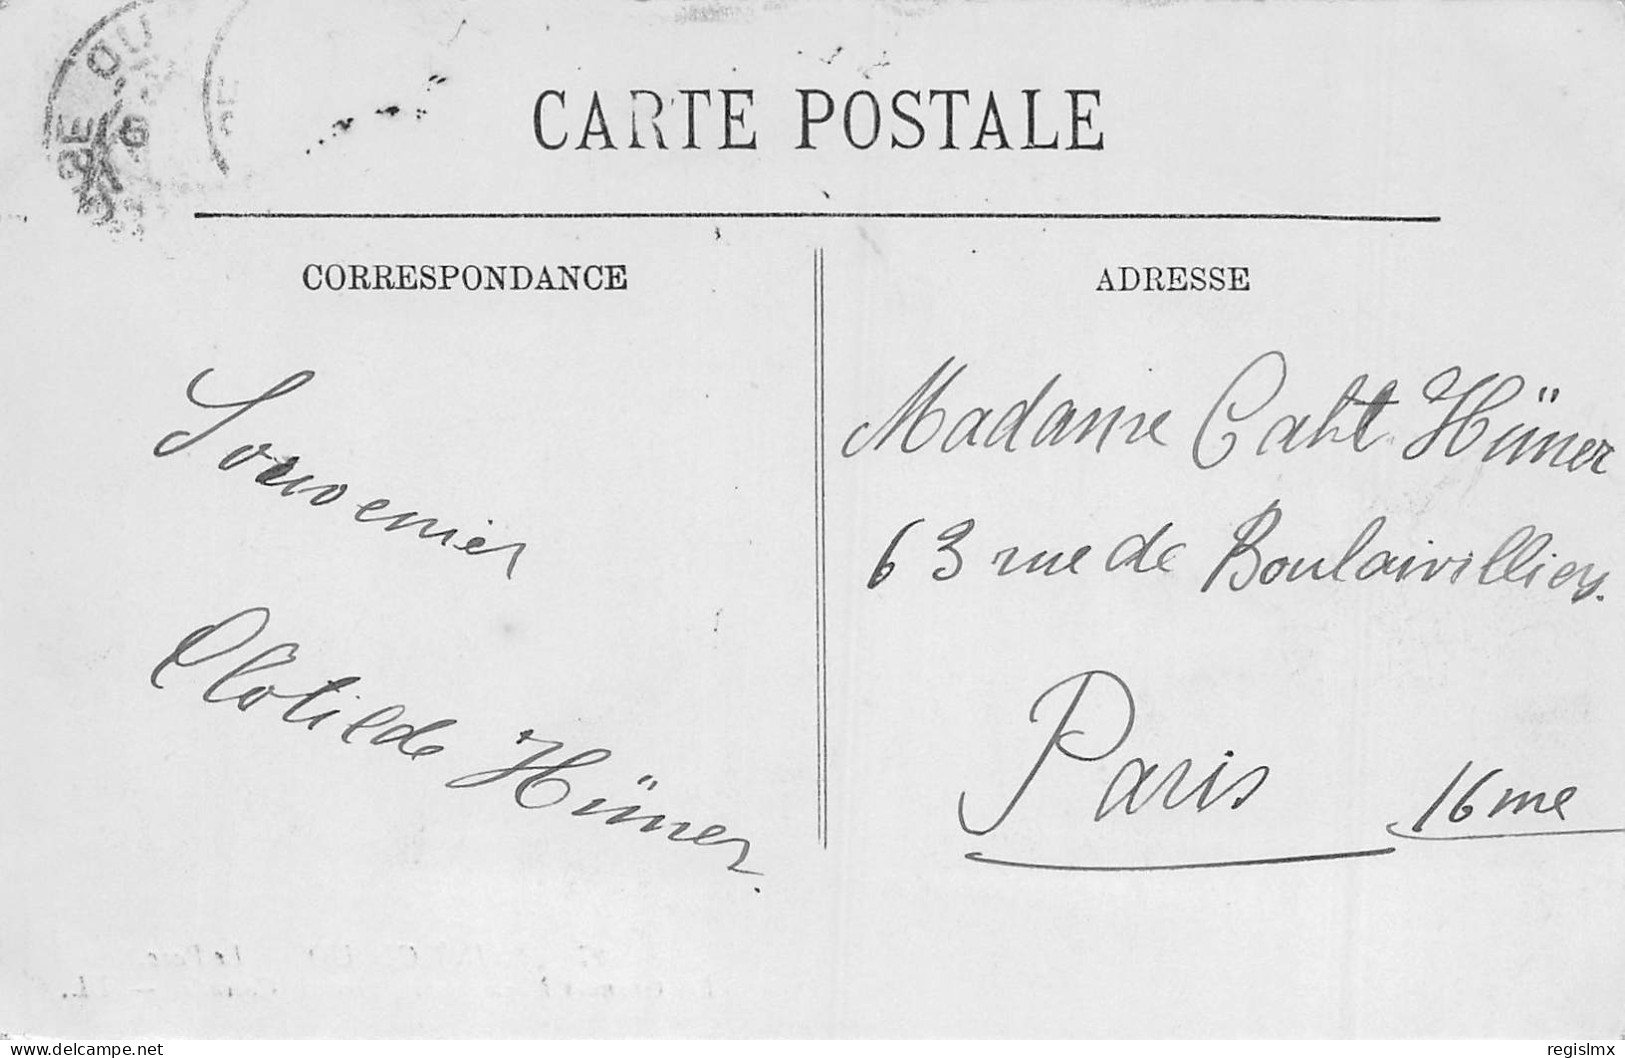 CARTE POSTALE
CORRESPONDANCE
Souvenir
Clotilde Hüner.
ADRESSE
Madame Caht Hüner
63 rue de Boulainvilliers.
Paris 16me
www.delcampe.net
regislmx